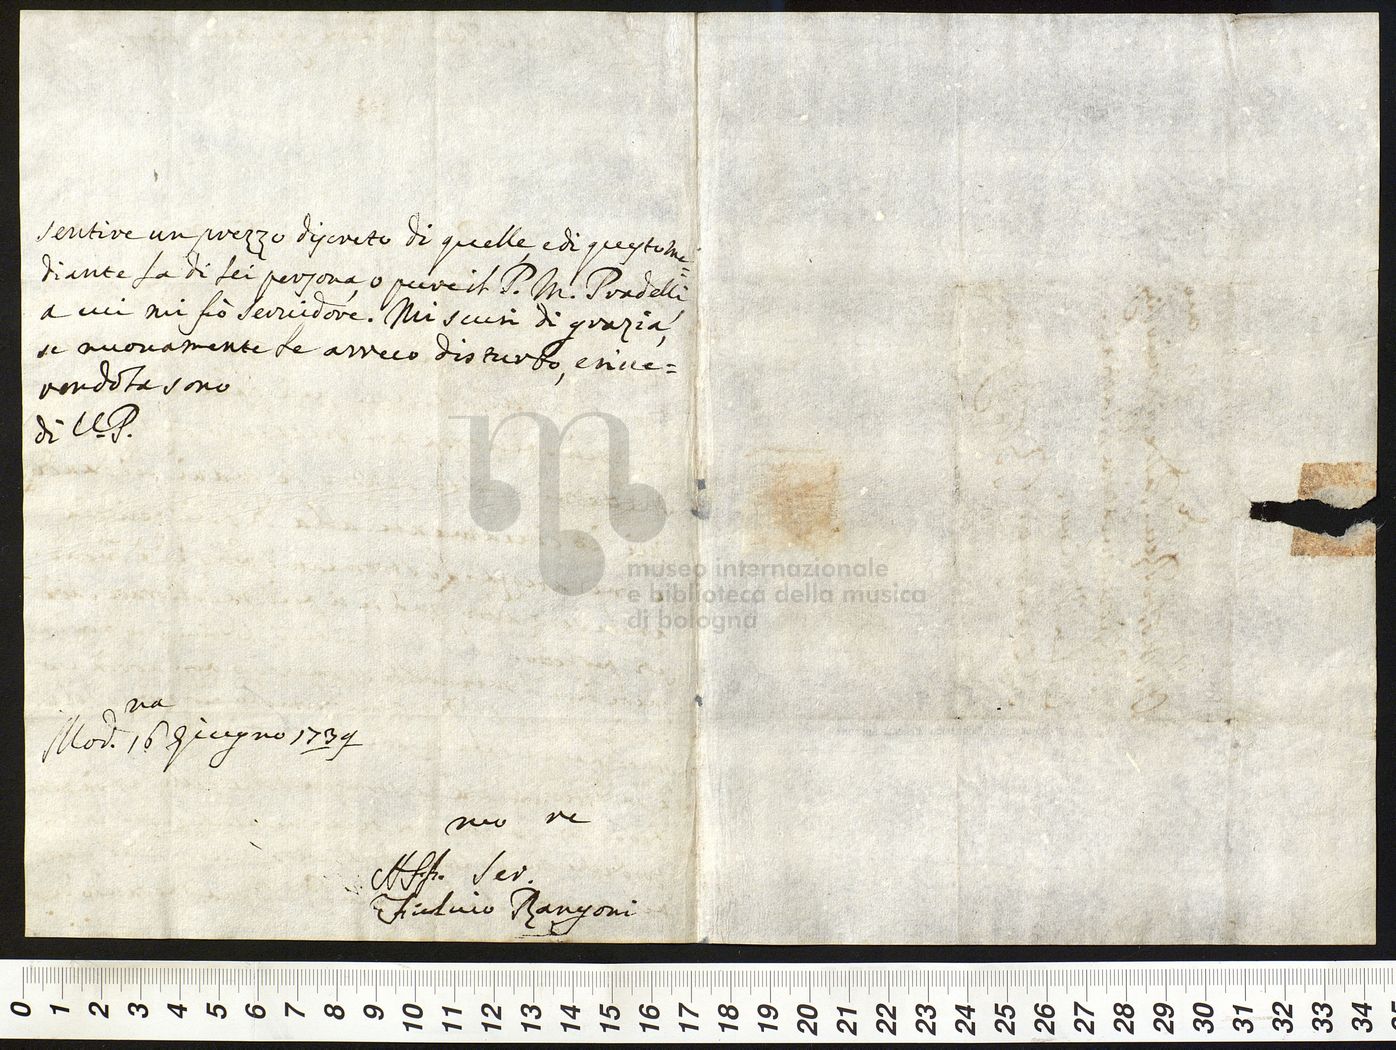 sentire un prezzo discreto di quelle, e di questo me=
diante la di lei persona, o pure il P. M. Pradelli
a cui mi fò servidore. Mi scusi di grazia,
se nuovamente le arreco disturbo, e rive=
rendola sono
di V. P.
Mod.na 16 Giugno 1739
Aff.mo Ser.re
Fulvio Rangoni
museo internazionale
e biblioteca della musica
di bologna
0 1 2 3 4 5 6 7 8 9 10 11 12 13 14 15 16 17 18 19 20 21 22 23 24 25 26 27 28 29 30 31 32 33 34